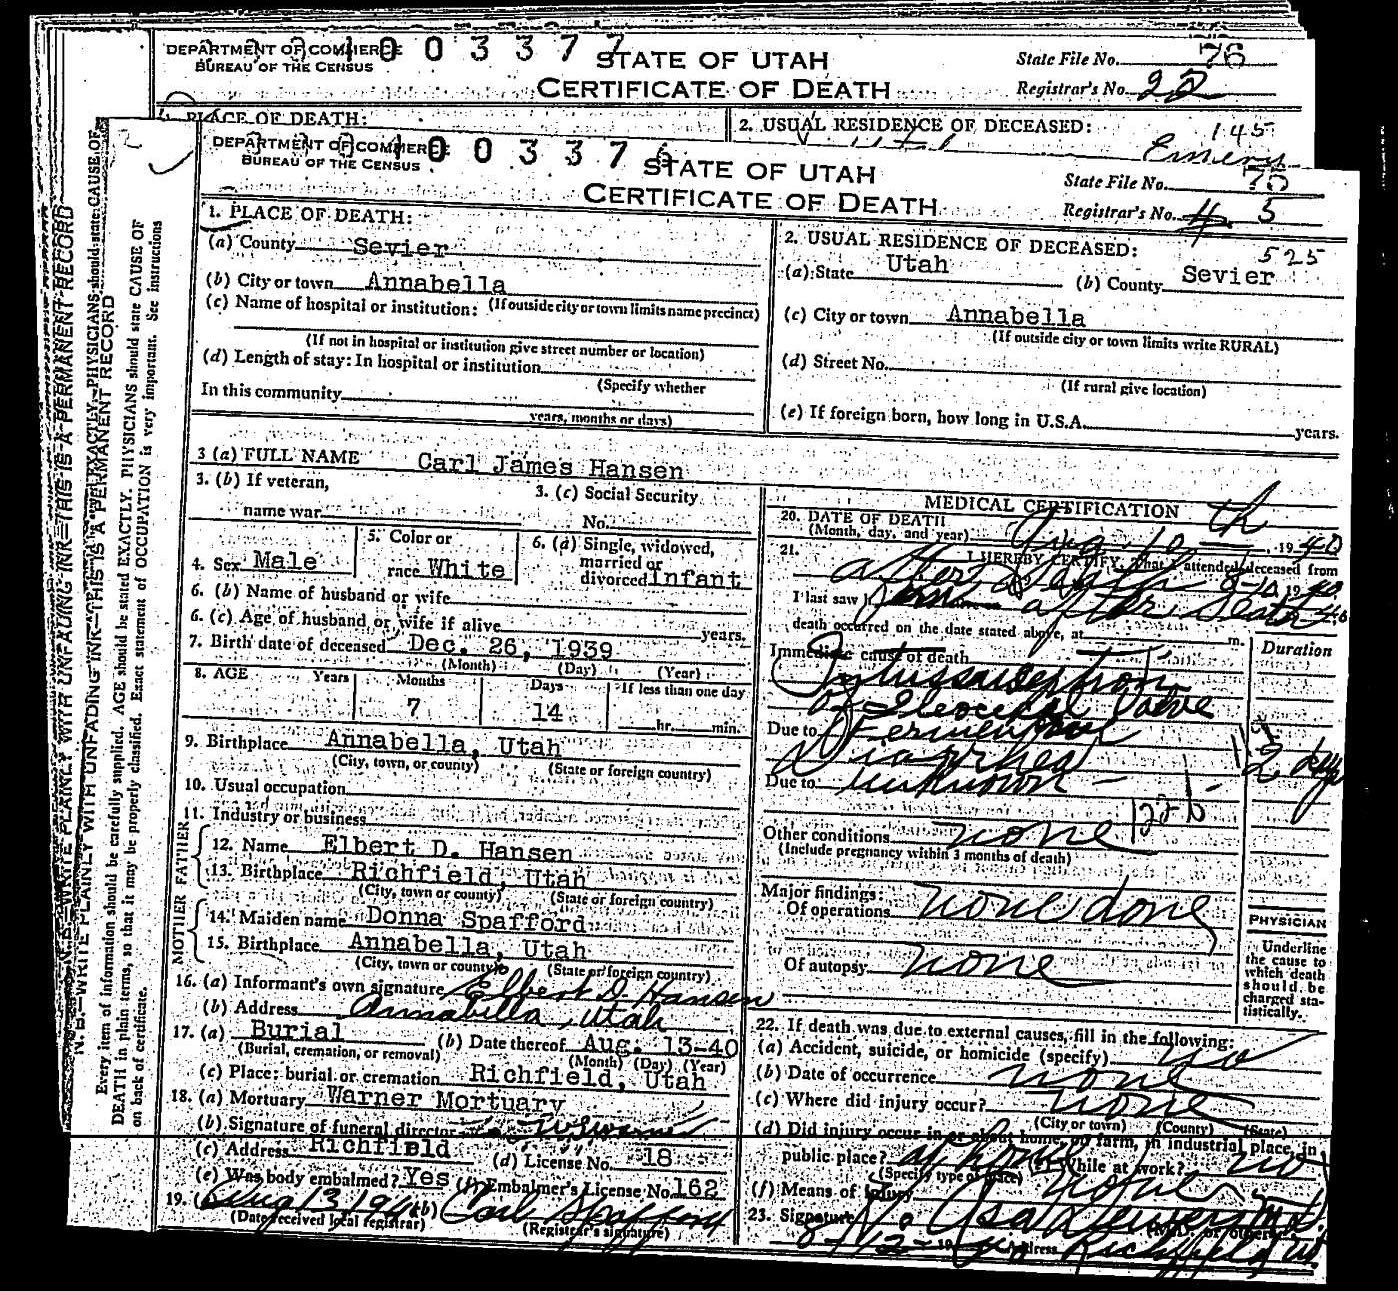 DEPARTMENT OF COMMERCE
BUREAU OF THE CENSUS
1003377
STATE OF UTAH
CERTIFICATE OF DEATH
State File No. 76
Registrar's No. 22
1. PLACE OF DEATH:
2. USUAL RESIDENCE OF DECEASED:
145
Emery
DEPARTMENT OF COMMERCE
BUREAU OF THE CENSUS
100337
STATE OF UTAH
CERTIFICATE OF DEATH
State File No.
Registrar's No. 5
1. PLACE OF DEATH:
(a) County Sevier
(b) City or town Annabella
(If outside city or town limits name precinct)
(c) Name of hospital or institution:
(If not in hospital or institution give street number or location)
(d) Length of stay: In hospital or institution
(Specify whether
In this community
years, months or days)
2. USUAL RESIDENCE OF DECEASED:
525
(a) State Utah (b) County Sevier
(c) City or town Annabella
(If outside city or town limits write RURAL)
(d) Street No.
(If rural give location)
(e) If foreign born, how long in U.S.A. years.
3 (a) FULL NAME Carl James Hansen
3. (b) If veteran,
name war
3. (c) Social Security
No.
4. Sex Male
5. Color or
race White
6. (a) Single, widowed,
married or
divorced infant
6. (b) Name of husband or wife
6. (c) Age of husband or wife if alive years.
7. Birth date of deceased Dec. 26, 1939
(Month) (Day) (Year)
8. AGE Years Months Days If less than one day
7 14 hr. min.
9. Birthplace Annabella, Utah
(City, town, or county) (State or foreign country)
10. Usual occupation
11. Industry or business
FATHER
12. Name Elbert D. Hansen
13. Birthplace Richfield, Utah
(City, town or county) (State or foreign country)
MOTHER
14. Maiden name Donna Spafford
15. Birthplace Annabella, Utah
(City, town or county) (State or foreign country)
16. (a) Informant's own signature Elbert D Hansen
(b) Address Annabella, Utah
17. (a) Burial (b) Date thereof Aug. 13-40
(Burial, cremation, or removal) (Month) (Day) (Year)
(c) Place: burial or cremation Richfield, Utah
18. (a) Mortuary Warner Mortuary
(b) Signature of funeral director
(c) Address Richfield (d) License No. 18
(e) Was body embalmed? Yes (f) Embalmer's License No. 162
19. (a) Aug 13 1940 (b) Carl Spafford
(Date received local registrar) (Registrar's signature)
MEDICAL CERTIFICATION
20. DATE OF DEATH
(Month, day, and year) Aug. 10 th, 1940
21. I HEREBY CERTIFY, That I attended deceased from
after death 8-10 1940
I last saw h after death
death occurred on the date stated above, at m.
Immediate cause of death
Duration
Intussusception
of Ileocecal Valve
Due to Fermentive
Diarrhea
2 days
Due to unknown
Other conditions none
(Include pregnancy within 3 months of death)
Major findings:
Of operations none done
Of autopsy none
PHYSICIAN
Underline
the cause to
which death
should be
charged sta-
tistically.
22. If death was due to external causes, fill in the following:
(a) Accident, suicide, or homicide (specify) no
(b) Date of occurrence none
(c) Where did injury occur? none
(City or town) (County) (State)
(d) Did injury occur in or about home, on farm, in industrial place, in
public place? at home (e) While at work? no
(Specify type of place)
(f) Means of injury none
23. Signature (M.D. or other)
8-12-1940 Address Richfield Ut.
N. B.—WRITE PLAINLY WITH UNFADING INK—THIS IS A PERMANENT RECORD
Every item of information should be carefully supplied. AGE should be stated EXACTLY. PHYSICIANS should state CAUSE OF
DEATH in plain terms, so that it may be properly classified. Exact statement of OCCUPATION is very important. See instructions
on back of certificate.